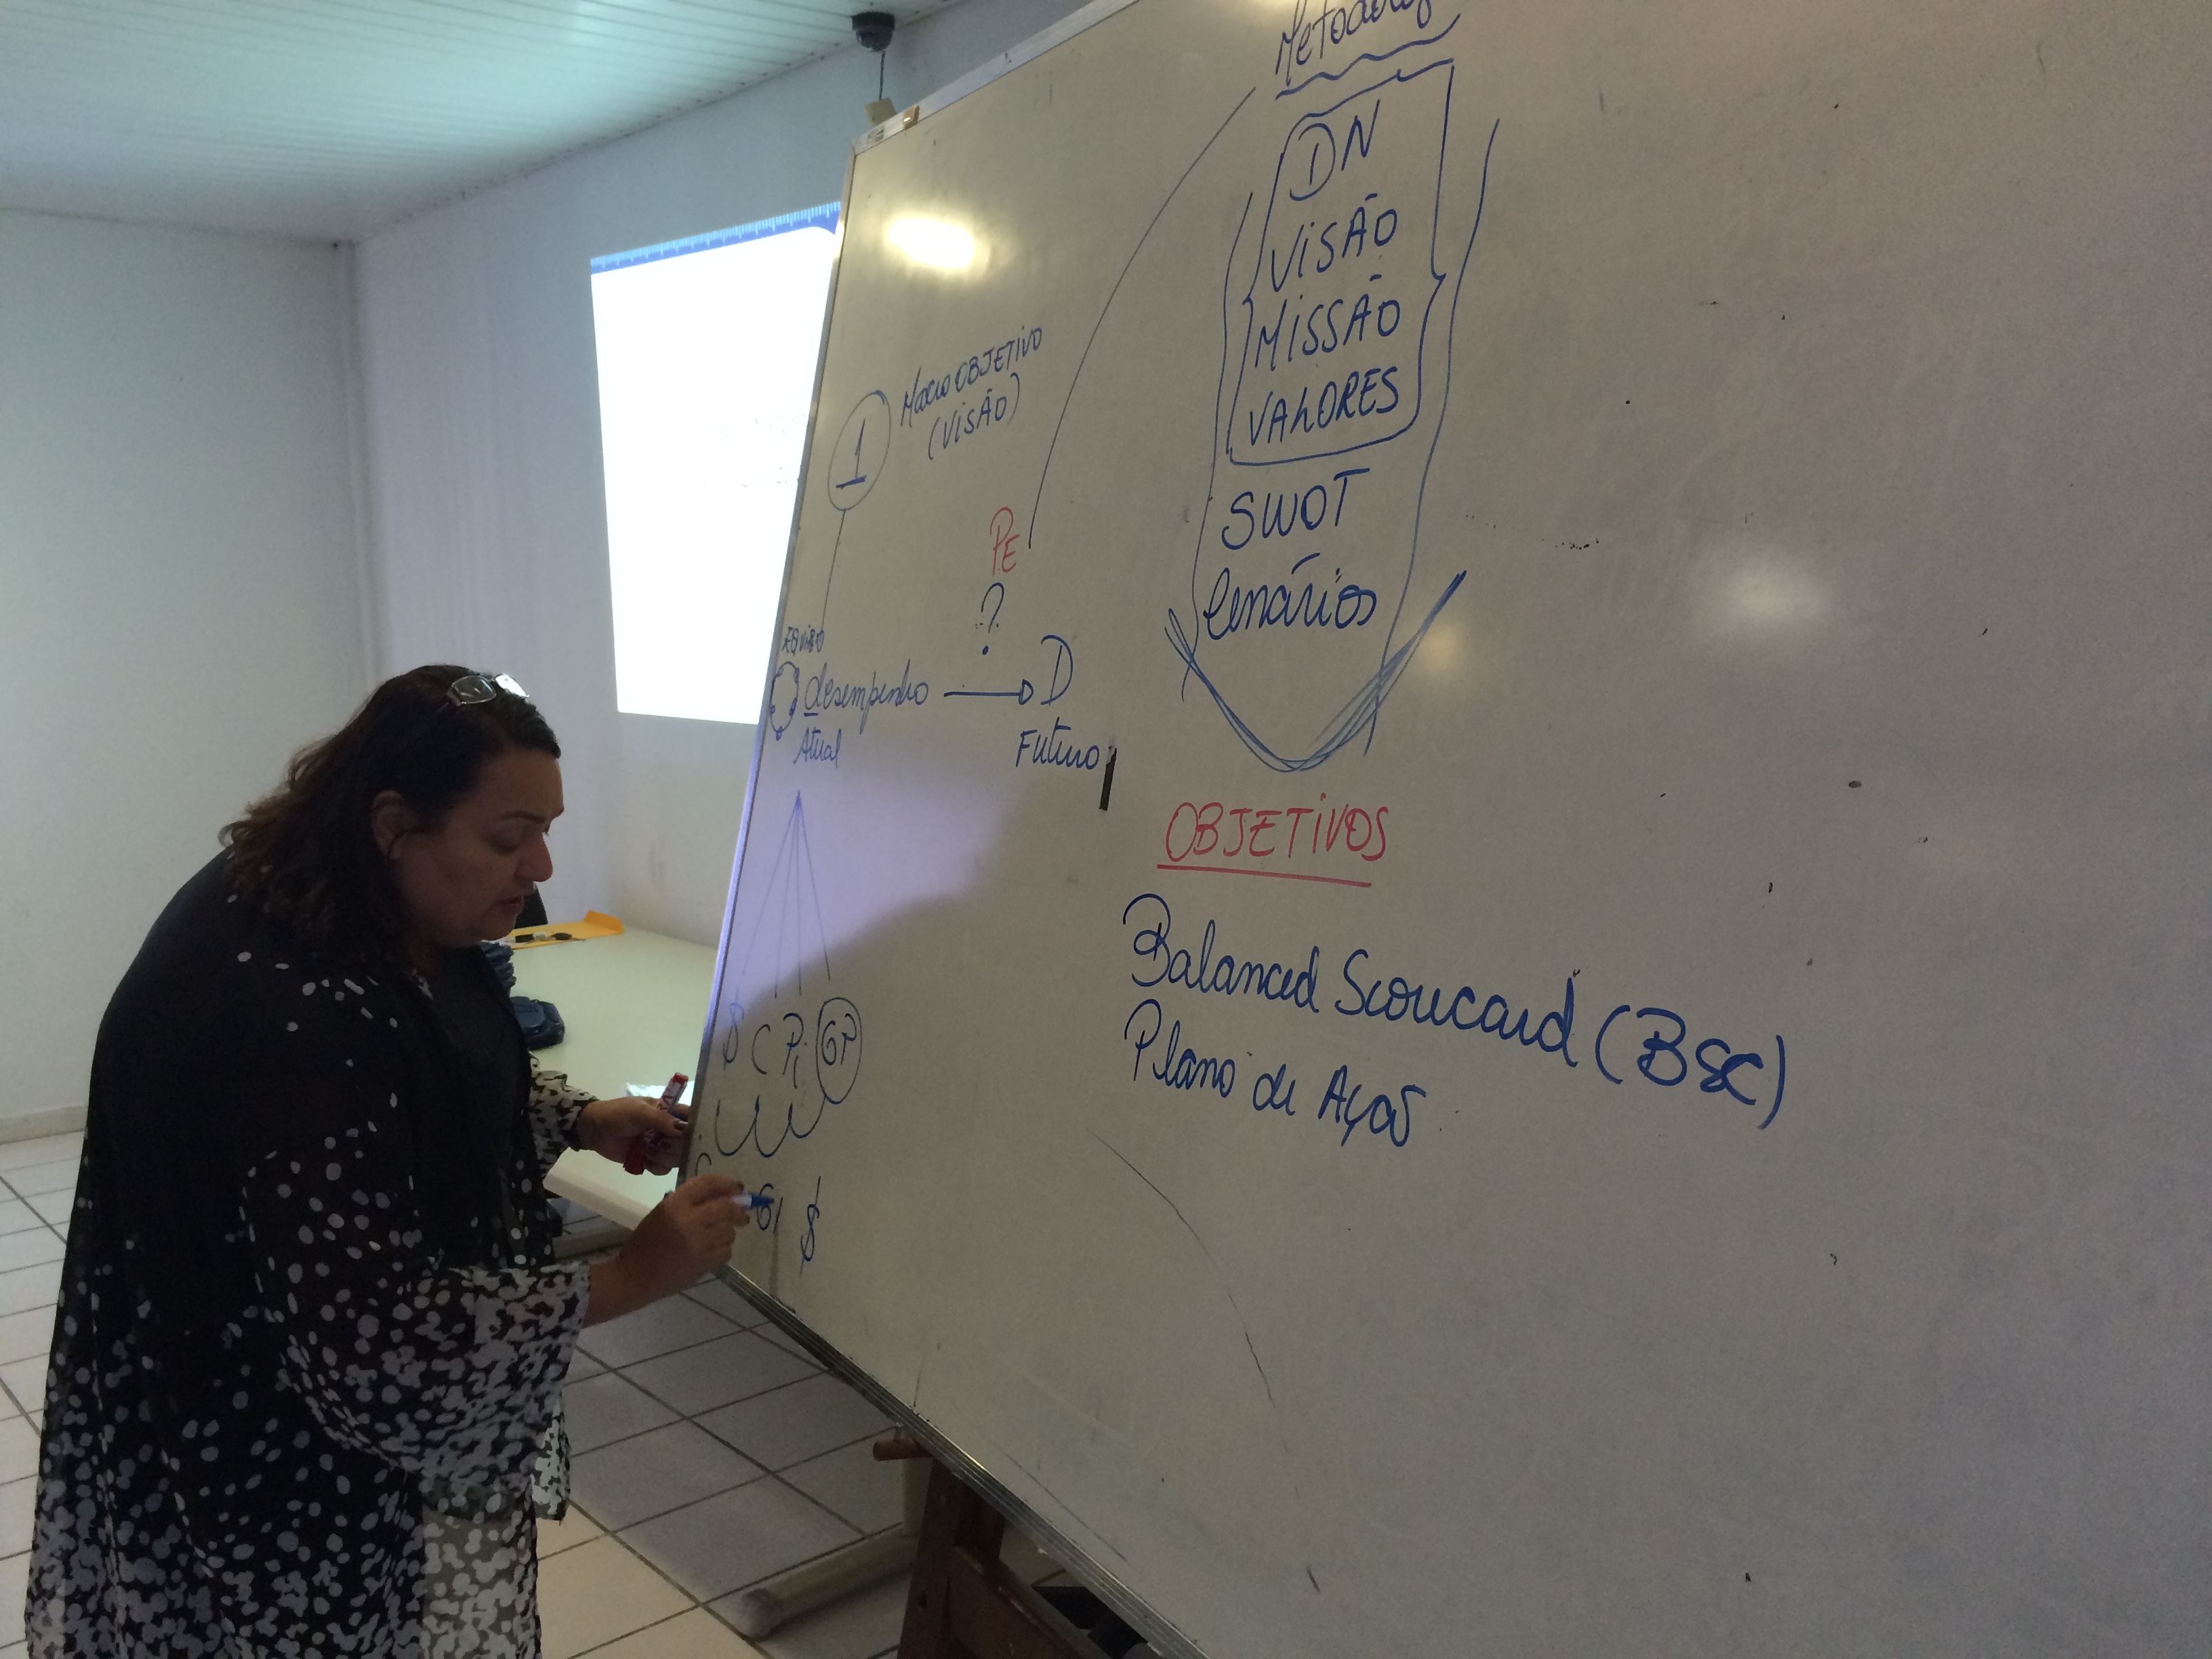 DN
VISÃO
MISSÃO
VALORES
SWOT
Cenários
1
MACRO OBJETIVO
(VISÃO)
PE
?
desempenho
D
Atual
Futuro
$ C Pi GP
$
OBJETIVOS
Balanced Scorecard (BSC)
Plano de Ação